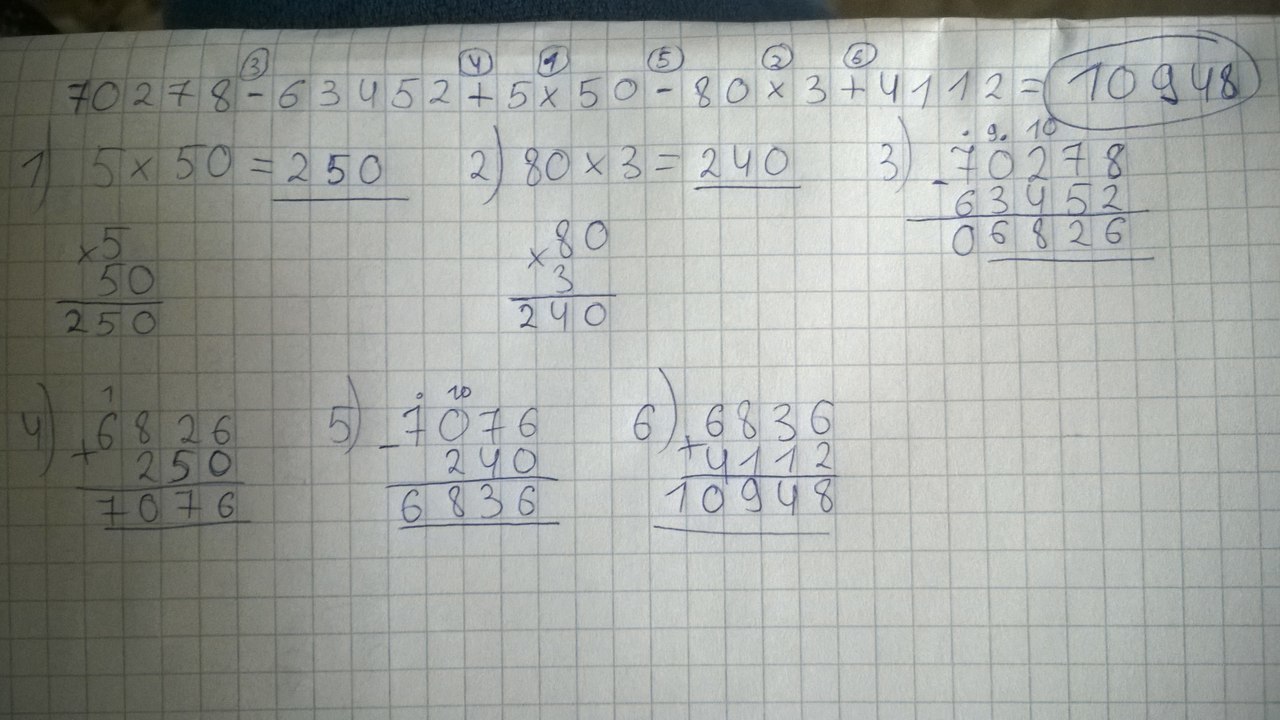 ③ ④ ① ⑤ ② ⑥
70278-63452+5×50-80×3+4112=10948
1) 5×50=250 2) 80×3=240 3) . 9. 10
70278
-63452
06826
×5
50
250
×80
3
240
4) 1
6826
+250
7076
5) . 10
7076
-240
6836
6) 6836
+4112
10948